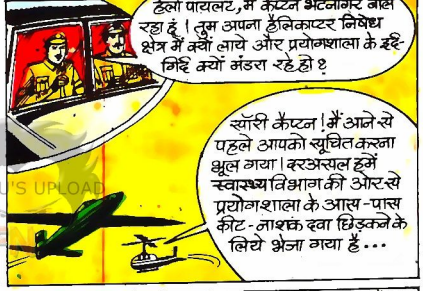 हैलो पायलट, मैं कैप्टन भटनागर बोल
रहा हूं ! तुम अपना हैलिकाप्टर निषेध
क्षेत्र में क्यों लाये और प्रयोगशाला के इर्द-
गिर्द क्यों मंडरा रहे हो ?
सॉरी कैप्टन ! मैं आने से
पहले आपको सूचित करना
भूल गया ! दरअसल हमें
स्वास्थ्य विभाग की ओर से
प्रयोगशाला के आस-पास
कीट-नाशक दवा छिड़कने के
लिये भेजा गया है...
U'S UPLOAD